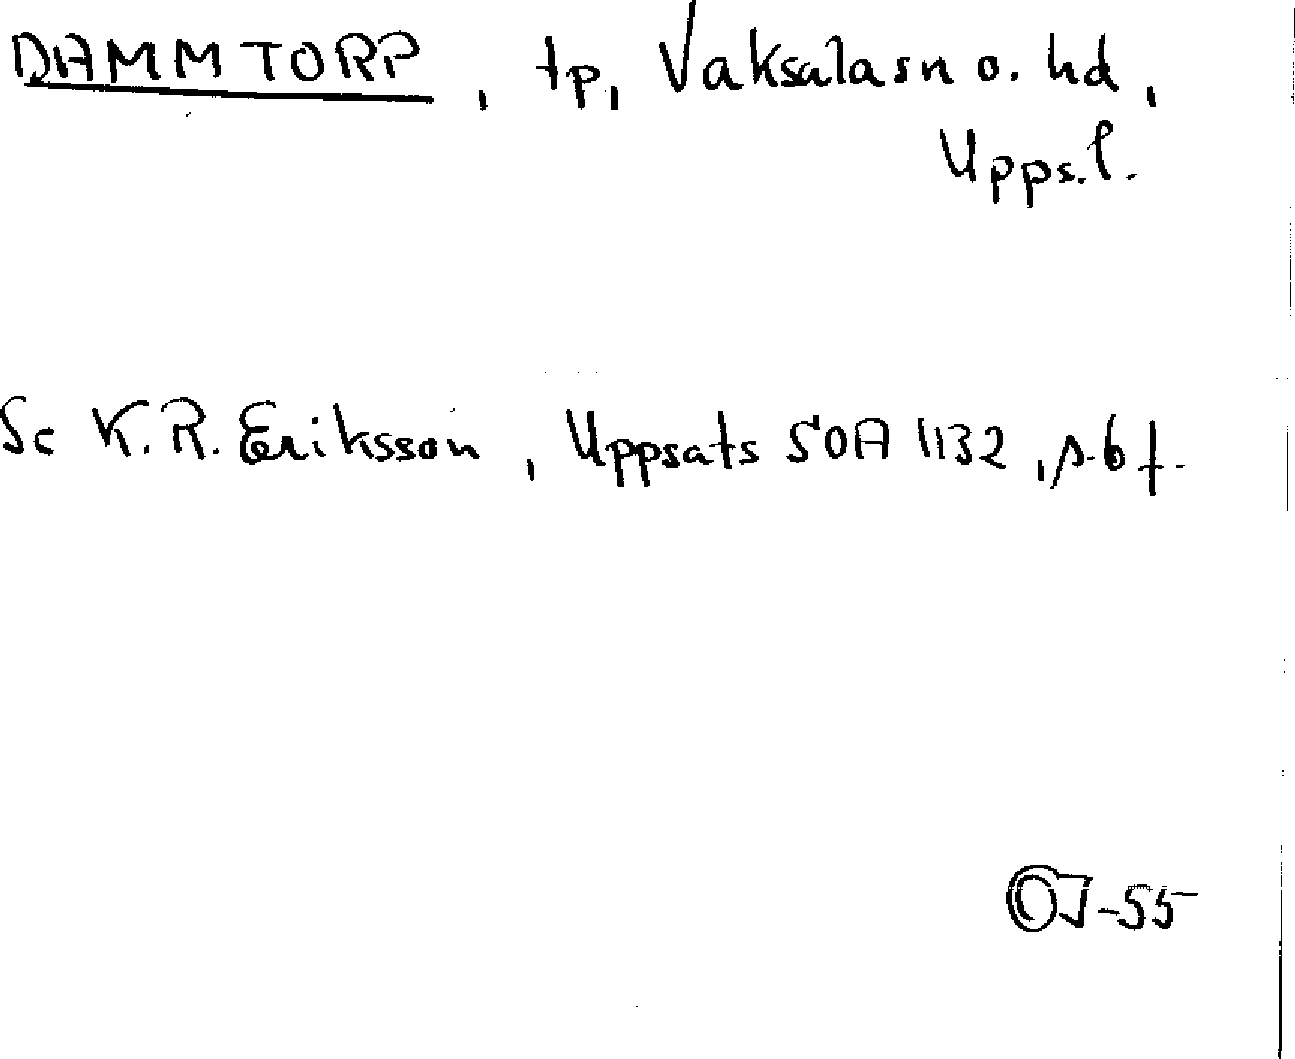 DAMMTORP, tp, Vaksala sn o. hd,
Upps.l.
Se K.R. Eriksson, Uppsats SOA 1132, s. 6 f.
OJ-55